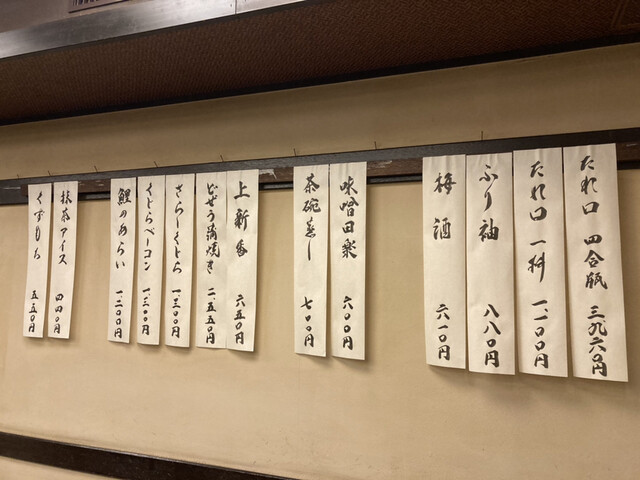 たれ口 四合瓶 三、九六〇円
たれ口 一杯 一、一〇〇円
ふり袖 八八〇円
梅酒 六一〇円
味噌田楽 六〇〇円
茶碗蒸し 七〇〇円
上新香 六五〇円
どぜう蒲焼き 二、五五〇円
さらしくじら 一、三〇〇円
くじらベーコン 一、三〇〇円
鯉のあらい 一、二〇〇円
抹茶アイス 四四〇円
くずもち 五五〇円